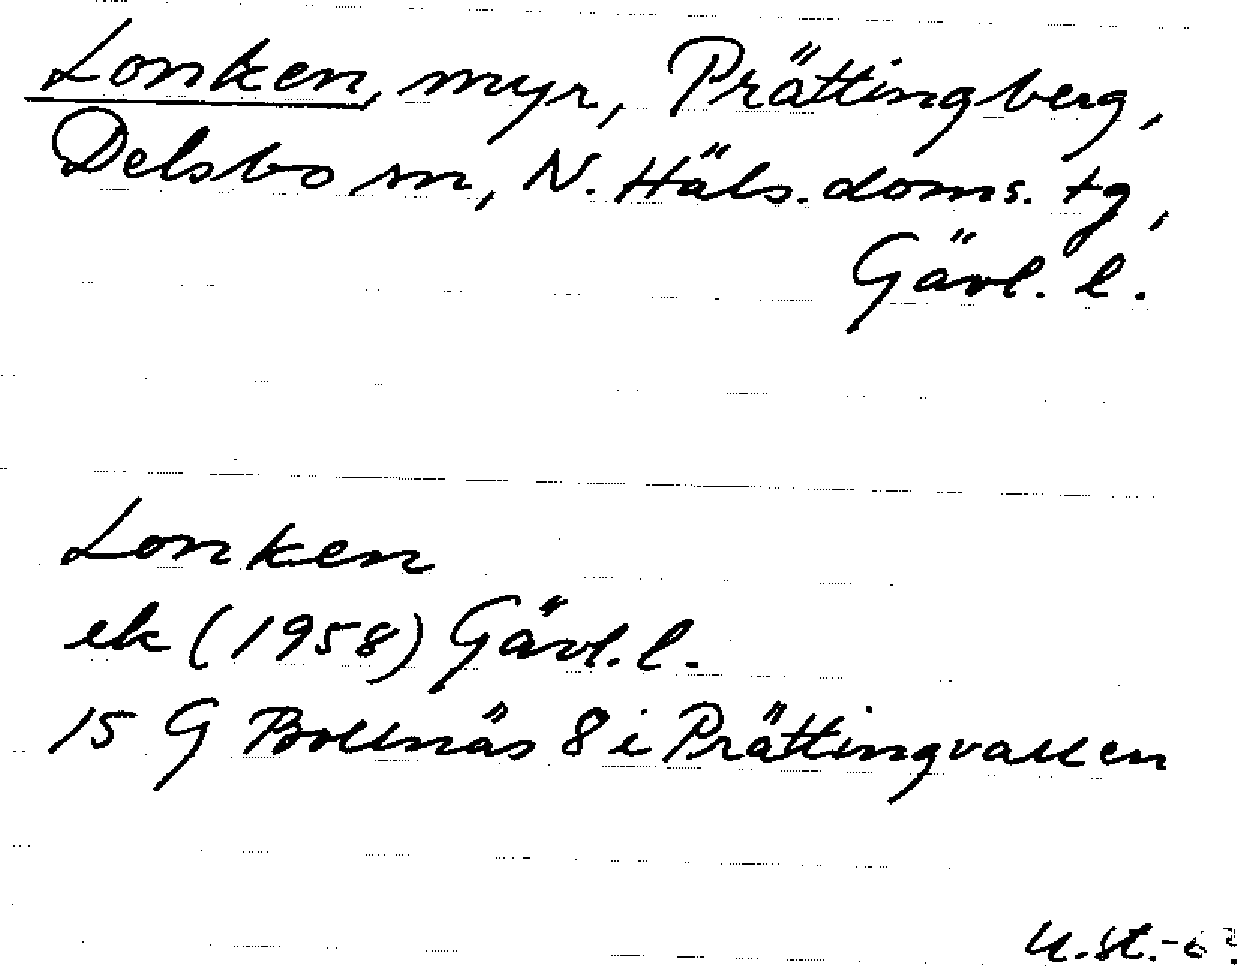 Lonken, myr, Prättingberg,
Delsbo sn, N. Häls. doms. tg,
Gävl. l.
Lonken
ek (1958) Gävl. l.
15 G Bollnäs 8 i Prättingvallen
U.St.